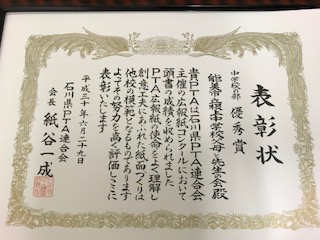 表彰状
中学校の部 優秀賞
能美市立根上中学校父母と先生の会殿
貴PTAは石川県PTA連合会
主催の広報紙コンクールにおいて
頭書の成績を収められました
PTA広報紙の使命をよく理解し
創意工夫にあふれた紙面づくりは
他校の模範となるものであります
よってその努力を高く評価しここに
表彰いたします
平成三十年六月二十九日
石川県PTA連合会
会長 紙谷一成